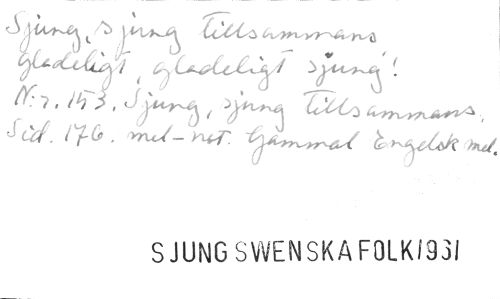 Sjung, sjung tillsammans
gladeligt, gladeligt sjung!
N:r. 153. Sjung, sjung tillsammans.
Sid. 176. mel-not. Gammal Engelsk mel.
SJUNG SWENSKA FOLK/1931